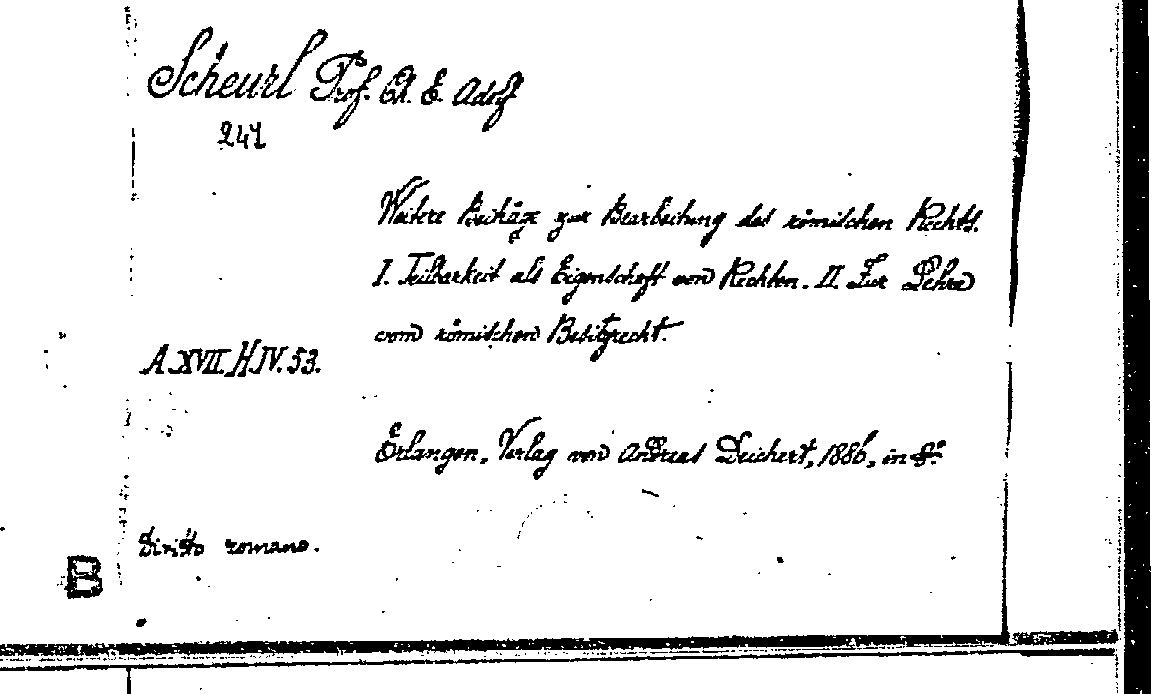 Scheurl Prof. Ch. E. Adolf
241
Weitere Beiträge zur Bearbeitung des römischen Rechts.
I. Teilbarkeit als Eigenschaft von Rechten. II. Zur Lehre
vom römischen Besitzrecht.
A.XVII.H.IV.53.
Erlangen, Verlag von Andreas Deichert, 1886, in 8º.
Diritto romano.
B